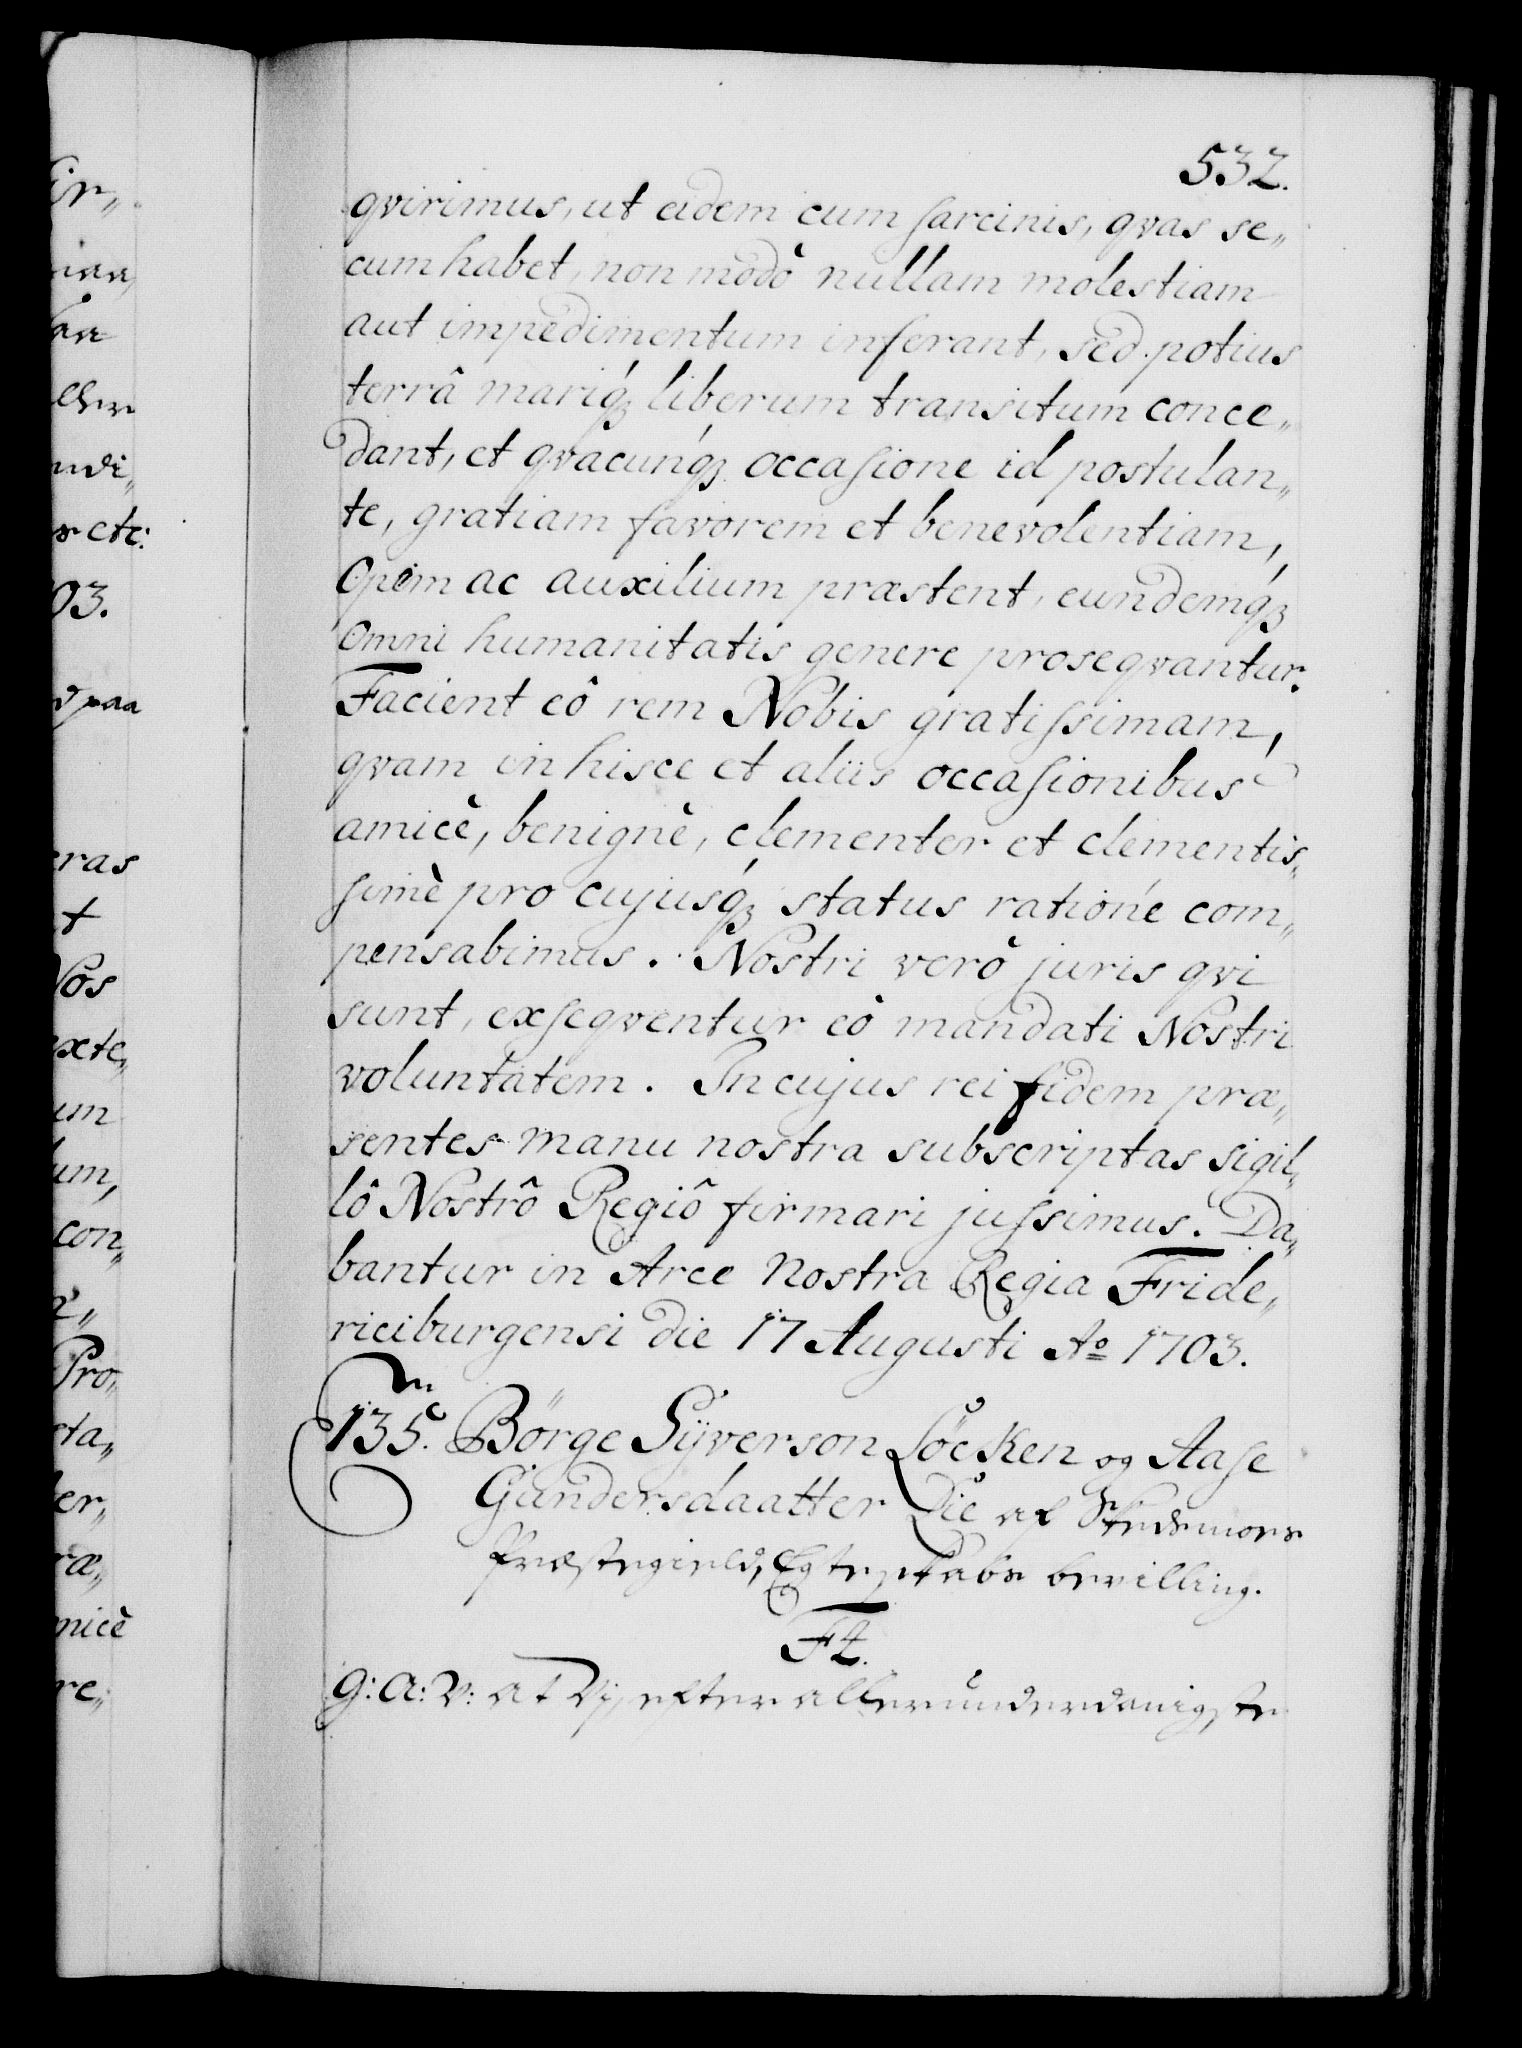 532.
qvirimus, ut eidem cum sarcinis, qvas se„
cum habet, non modò nullam molestiam
aut impedimentum inferant, sed potius
terrâ mariq́; liberum transitum conce„
dant, et qvacunq́; occasione id postulan„
te, gratiam favorem et benevolentiam,
Opem ac auxilium præstent, eundemq́;
Omni humanitatis genere proseqvantur.
Facient eô rem Nobis gratissimam,
qvam in hisce et aliis occasionibus
amicè, benignè, clementer et clementis„
simè pro cujusq́; status ratione com„
pensabimus. Nostri verò juris qvi
sunt, exseqventur eô mandati Nostri
voluntatem. In cujus rei fidem præ„
sentes manu nostra subscriptas sigil„
lô Nostrô Regiô firmari jussimus. Da„
bantur in Arce Nostra Regia Fride„
riciburgensi die 17 Augusti Aº 1703.
135. Börge Syverson Löcken og Aase
Gundersdaatter Lie af
Præstegield, Egteskabs bevilling.
F4.
G: A: V: at Vj, efter allerunderdanigste
er„
eras
t
Nos
exte„
um
lum,
con„
Pro„
sta„
ter„
ræ„
micè
re„
s etc:
03.